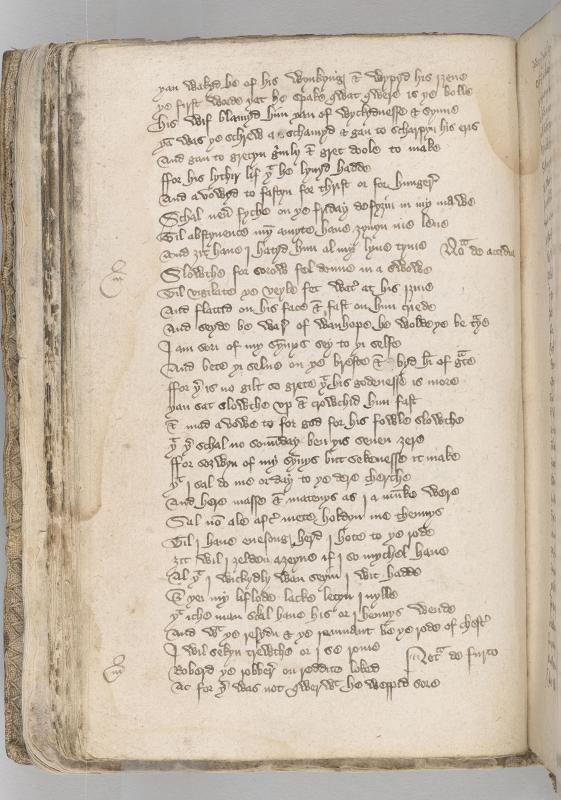 yan wakyd he of his wynkyngᵉ & wypyd his iyene
ye first worde yat he spake qwat qwere is ye bolle
his wif blamyd him yan of wyckydnesse & synne
yᵗ was ye schrew aschamyd & gan to scharpyn his eris
And gan to gretyn gⁱmly & gret doole to make
ffor his lythir lif yᵗ he lyuyd hadde
And avowyd to fastyn for thrist or for hungerᵉ
Schal neuͬ fyche on ye fryday defyyn in my mawe
Til abstynence myn awnte haue ȝeuyn me leue
And ȝit haue I hatyd him al my lyue tyme
Noᵃ de accidia
Slowthe for sorow fel doune in a swowe
Til vigilate ye veyle fet watͬ at his iyne
And flattid on his face & fast on him criede
And seyde be war of wanhope he wolde ye betᵃye
I am sori of my synys sey to yi selfe
And bete yi selue on ye breste & byd hī of gᵃce
ffor yͬ is no gilt so grete yᵗ his godenesse is more
yan sat slowthe vp & crowchid him fast
& mad avowe to for god for his fowle slowthe
yͬ schal no soneday ben yis seuen ȝere
ffor of my synys but sekenesse it make
yᵗ I sal do me or day to ye dere cherche
And here masse & matenys as I a munke were
Sal non ale aftͬ mete holdyn me thennys
Til I haue euesong herd I hote to ye rode
ȝit wil I ȝelden aȝeyne if I so mychel haue
Al yᵗ I wickydly wan seyn I wit hadde
& yei my liflode lacke letyn I nylle
yᵗ iche man schal haue his or I hennys wende
And wᵗ ye resydu & ye remnant be ye rode of chestͬ
I wil sekyn trewthe or I se rome
Noᵗᵃ de furto
Roberd ye robberᵉ on reddite loked
Ac for yͬ was not qwerwᵗ he weppid sore